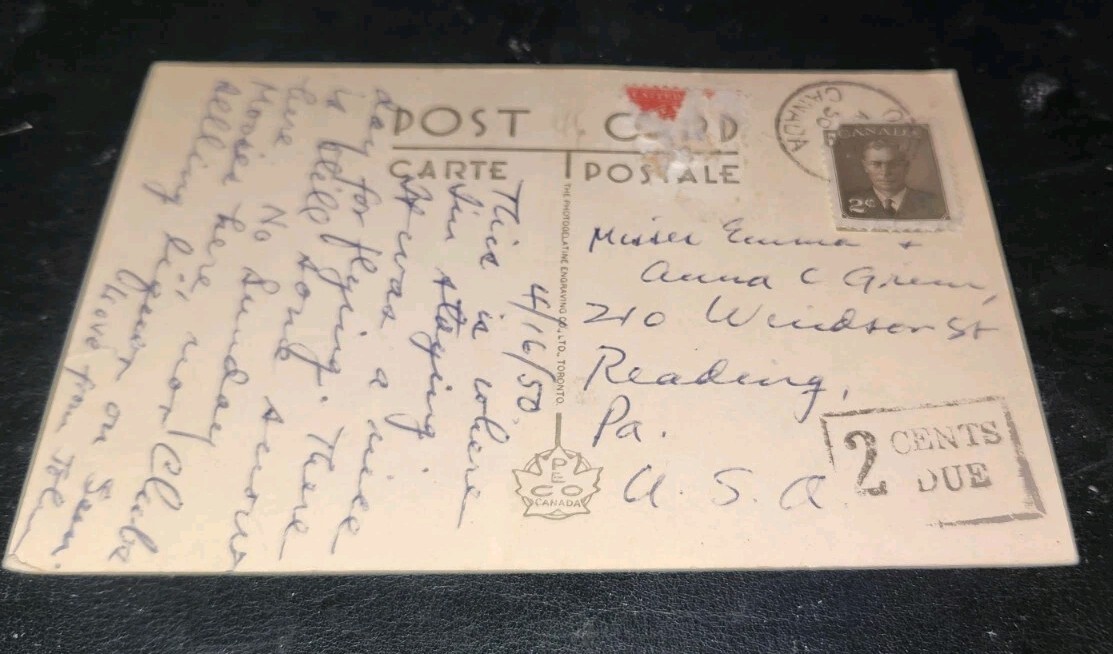 POST CARD
CARTE POSTALE
CANADA
CANADA
2¢
4/16/50.
This is where
I'm staying
It was a nice
day for flying. There
is still some snow
here No Sunday
Movie here, nor Clubs
selling liquor on Sun.
Love from John
THE PHOTOGELATINE ENGRAVING CO., LTD., TORONTO.
PECO
CANADA
Misses Emma +
Anna C
210 Windsor St
Reading,
Pa.
U. S. A
2 CENTS
DUE